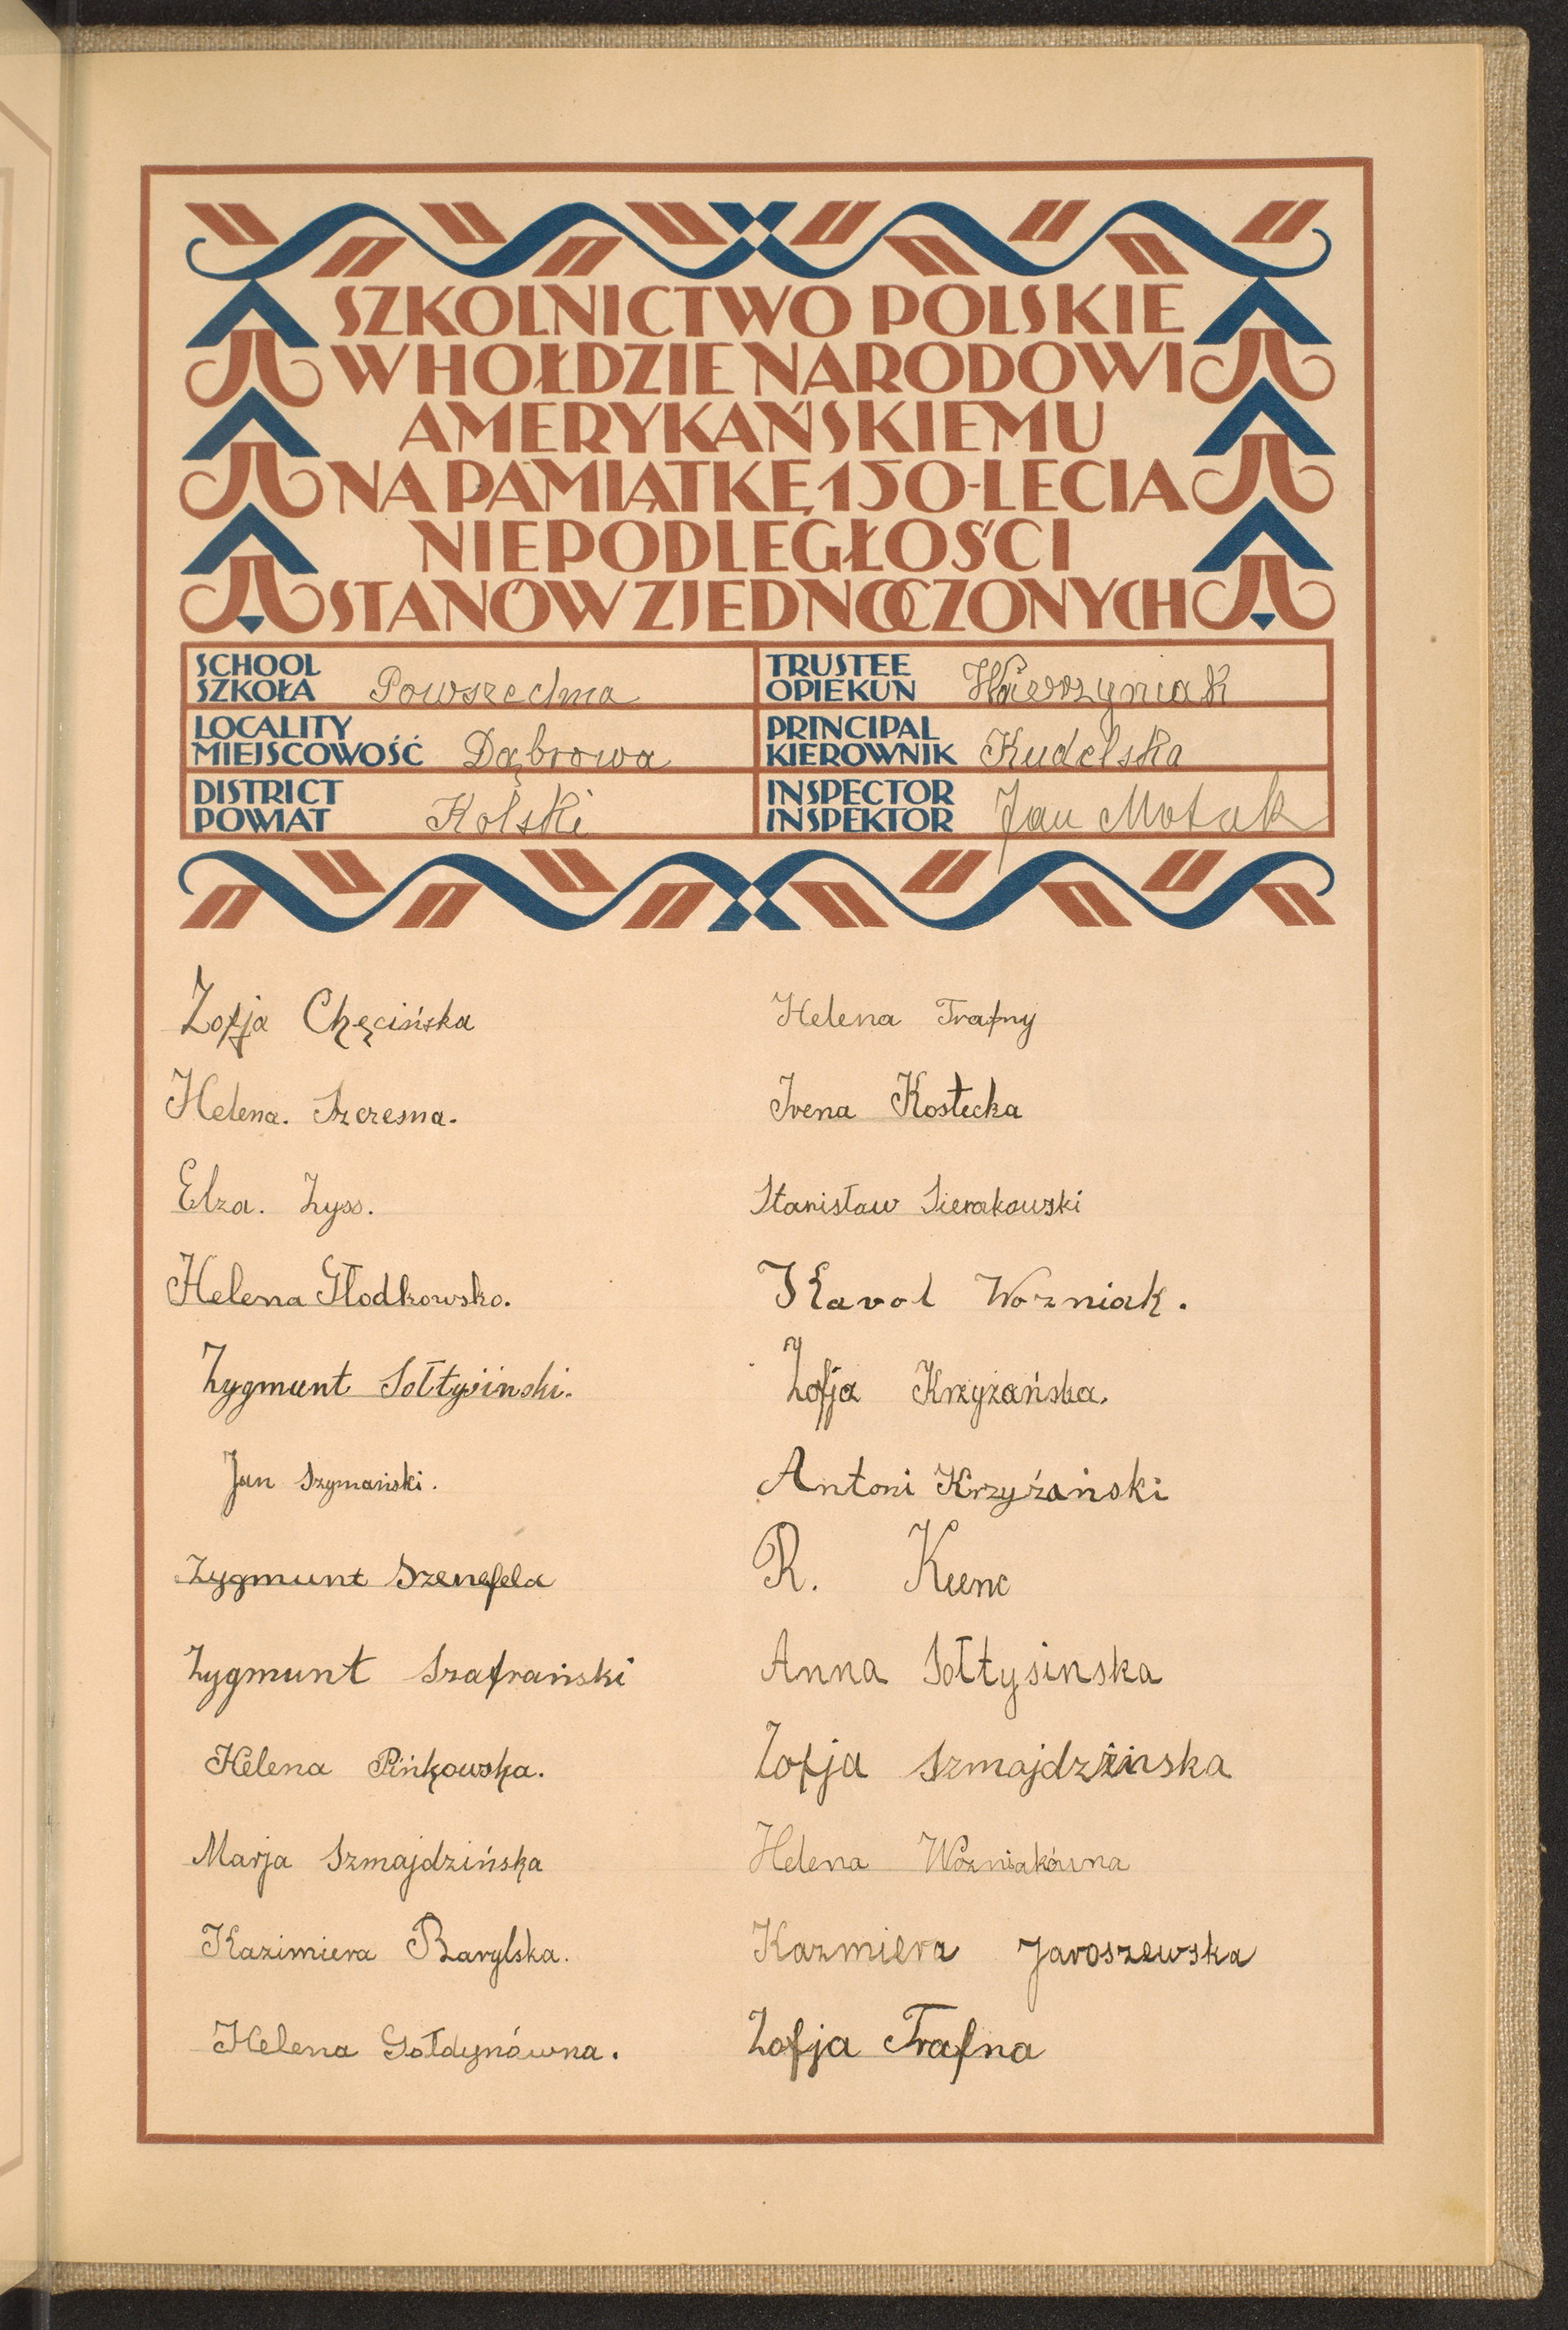 SZKOLNICTWO POLSKIE
W HOŁDZIE NARODOWI
AMERYKAŃSKIEMU
NA PAMIĄTKĘ 150-LECIA
NIEPODLEGŁOŚCI
STANÓW ZJEDNOCZONYCH
SCHOOL
SZKOŁA Powszechna
TRUSTEE
OPIEKUN Wawrzyniak
LOCALITY
MIEJSCOWOŚĆ Dąbrowa
PRINCIPAL
KIEROWNIK Kudelska
DISTRICT
POWIAT Kolski
INSPECTOR
INSPEKTOR Jan Motak
Zofja Chęcińska
Helena. Szczesna.
Elza. Zyss.
Helena Głodkowska.
Zygmunt Sołtysiński.
Jan Szymański.
Zygmunt Szenefeld
Zygmunt Szafrański
Helena Pińkowska.
Marja Szmajdzińska
Kazimiera Barylska.
Helena Gołdynówna.
Helena Trafny
Irena Kostecka
Stanisław Sierakowski
Karol Wozniak.
Zofja Krzyżańska.
Antoni Krzyżański
R. Kunc
Anna Sołtysinska
Zofja Szmajdzińska
Helena Wozniakówna
Kazmiera Jaroszewska
Zofja Trafna